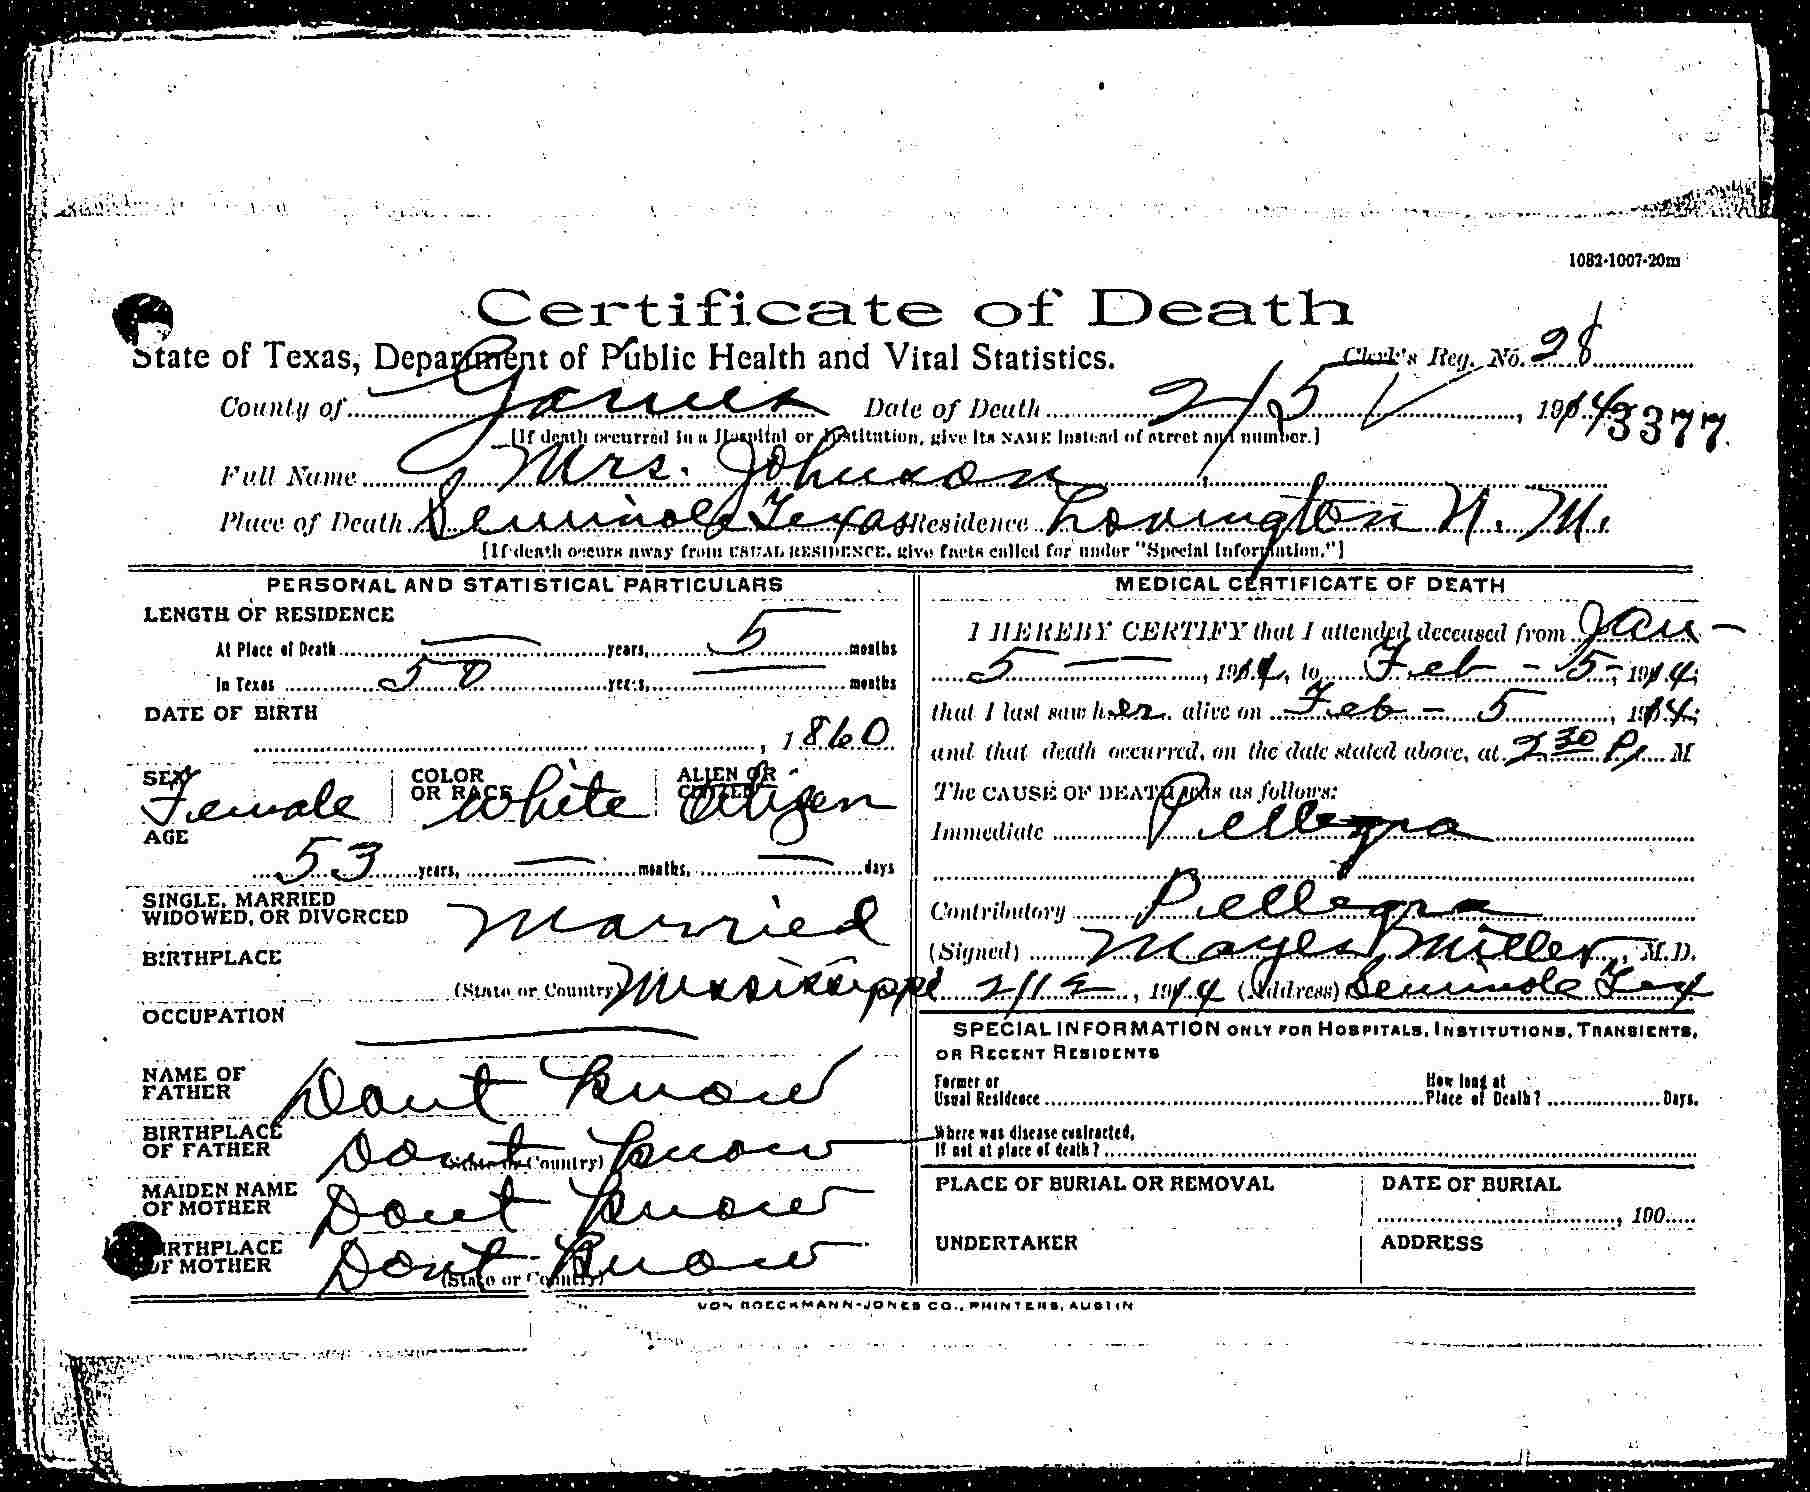 1082-1007-20m
Certificate of Death
State of Texas, Department of Public Health and Vital Statistics.
Clerk's Reg. No. 28
County of Gaines Date of Death 2/5/ 1914 3377
[If death occurred in a Hospital or Institution, give its NAME instead of street and number.]
Full Name Mrs. Johnson
Place of Death Seminole Texas Residence Lovington N. M.
[If death occurs away from USUAL RESIDENCE, give facts called for under "Special Information."]
PERSONAL AND STATISTICAL PARTICULARS
LENGTH OF RESIDENCE
At Place of Death — years, 5 months
In Texas 50 years, — months
DATE OF BIRTH
, 1860
SEX Female COLOR OR RACE White ALIEN OR CITIZEN Citizen
AGE
53 years, — months, — days
SINGLE, MARRIED
WIDOWED, OR DIVORCED Married
BIRTHPLACE
(State or Country) Mississippi
OCCUPATION —
NAME OF
FATHER Dont Know
BIRTHPLACE
OF FATHER Dont Know
(State or Country)
MAIDEN NAME
OF MOTHER Dont Know
BIRTHPLACE
OF MOTHER Dont Know
(State or Country)
MEDICAL CERTIFICATE OF DEATH
I HEREBY CERTIFY that I attended deceased from Jan —
5 — , 1914, to Feb - 5 -, 1914;
that I last saw her alive on Feb - 5 , 1914;
and that death occurred, on the date stated above, at 2 30 P. M
The CAUSE OF DEATH was as follows:
Immediate Pellegra
Contributory Pellegra
(Signed) Mayes Miller, M.D.
2/12, 1914 (Address) Seminole Tex
SPECIAL INFORMATION ONLY FOR HOSPITALS, INSTITUTIONS, TRANSIENTS,
OR RECENT RESIDENTS
Former or
Usual Residence
How long at
Place of Death? Days.
Where was disease contracted,
If not at place of death?
PLACE OF BURIAL OR REMOVAL
DATE OF BURIAL
, 190
UNDERTAKER
ADDRESS
VON BOECKMANN-JONES CO., PRINTERS, AUSTIN